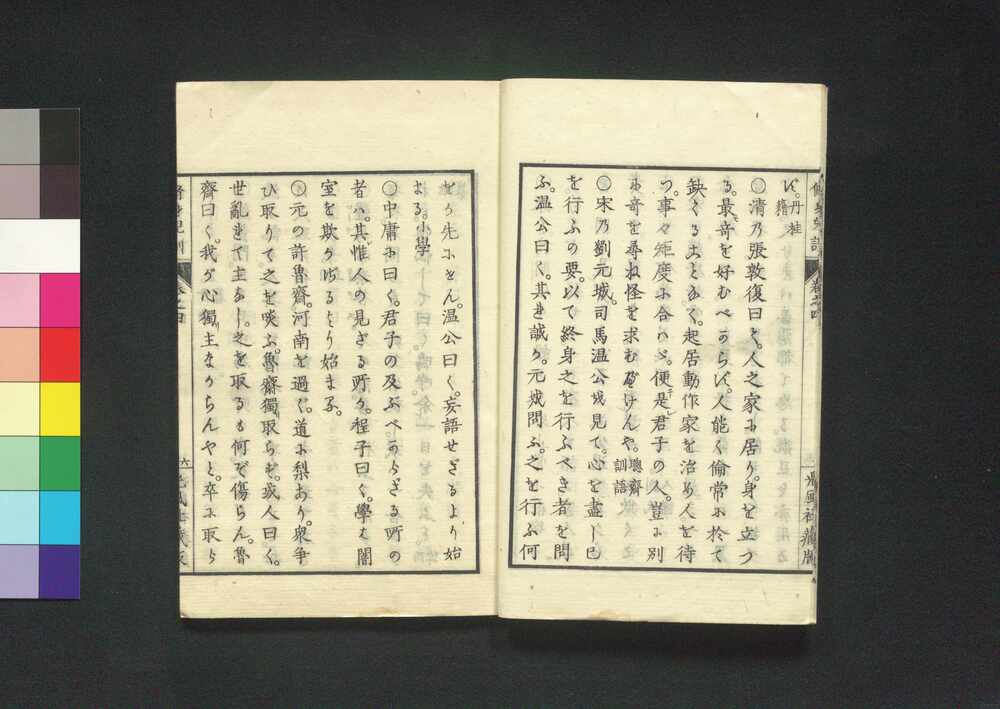 ず。丹桂籍
○清乃張敦復曰く。人之家に居り。身を立つ
る。最奇を好むべからず。人能く倫常に於て
缺くる事なく。起居動作家を治め人を待
つ。事々矩度に合へば。便是君子の人。豈に別
に奇を尋ね怪を求むべけんや。聰齋訓語
○宋乃劉元城。司馬温公に見て。心を盡し己
を行ふの要。以て終身之を行ふべき者を問
ふ。温公曰く。其れ誠か。元城問ふ。之を行ふ何
をか先にせん。温公曰く。妄語せざるより始
まる。小學
○中庸に曰く。君子の及ぶべからざる所の
者は。其惟人の見ざる所か。程子曰く。學は闇
室を欺かざるより始まる。
○元の許魯齋。河南を過ぐ。道に梨あり。衆争
ひ取りて之を啖ふ。魯齋獨取らず。或人曰く。
世亂れて主なし。之を取るも何ぞ傷らん。魯
齋曰く。我が心獨主なからんやと。卒に取ら
卷之四
六